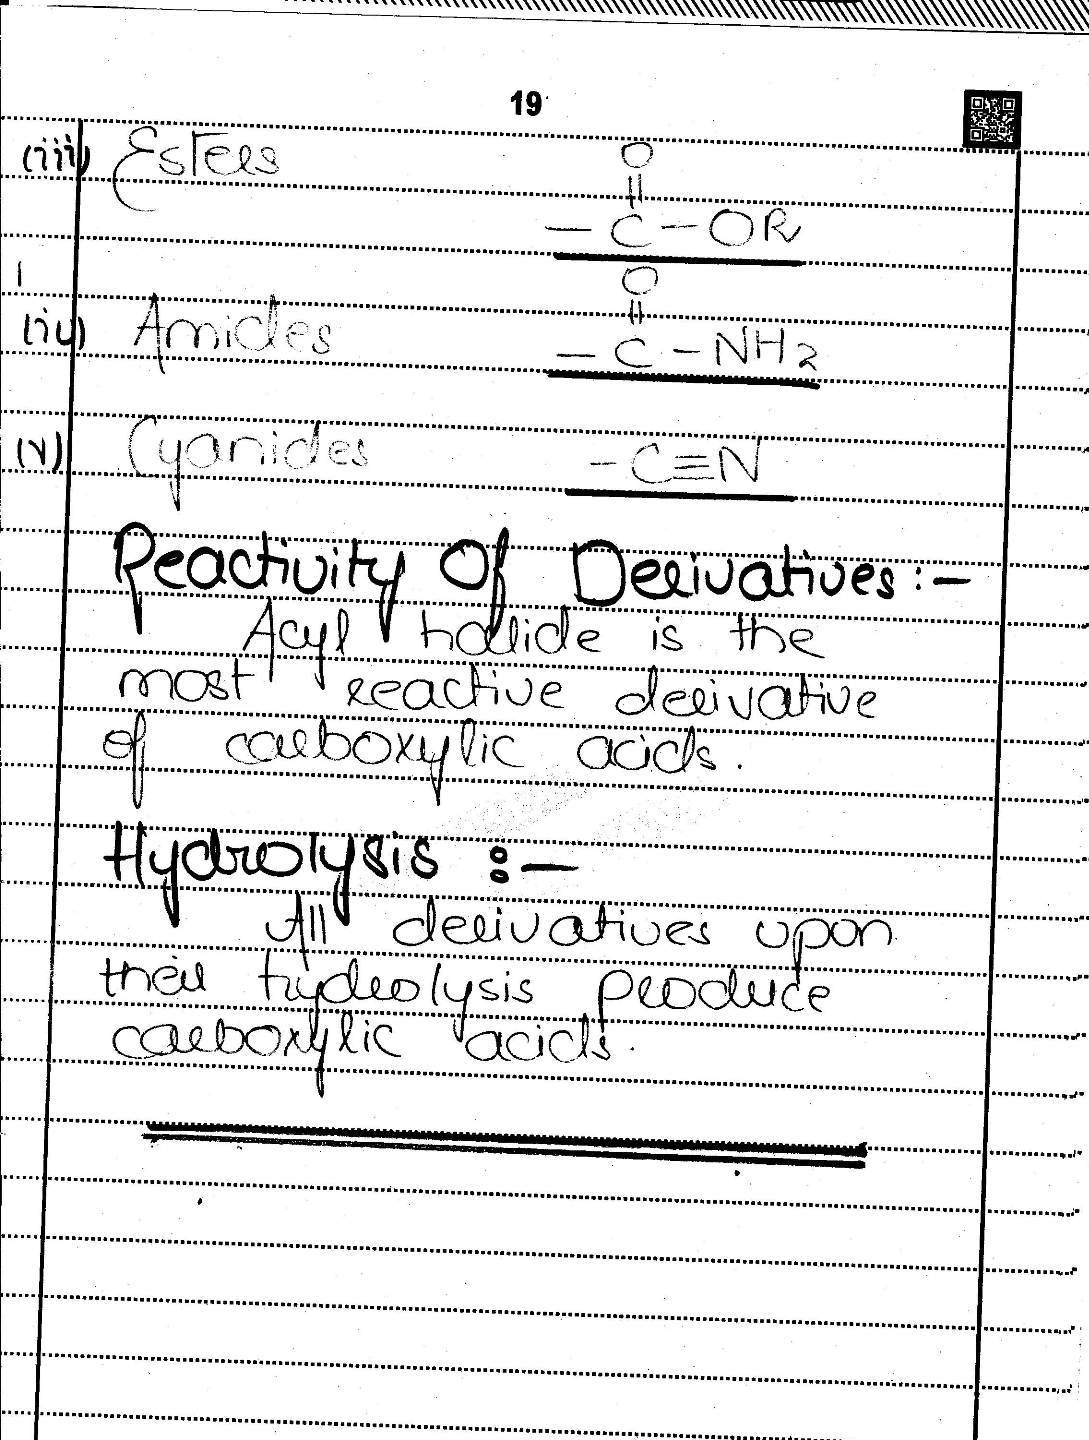 19
(iii) Esters
O
||
- C - OR
(iv) Amides
O
||
- C - NH2
(v) Cyanides -C≡N
Reactivity Of Derivatives :-
Acyl halide is the
most reactive derivative
of carboxylic acids.
Hydrolysis :-
All derivatives upon
their hydrolysis produce
carboxylic acids.